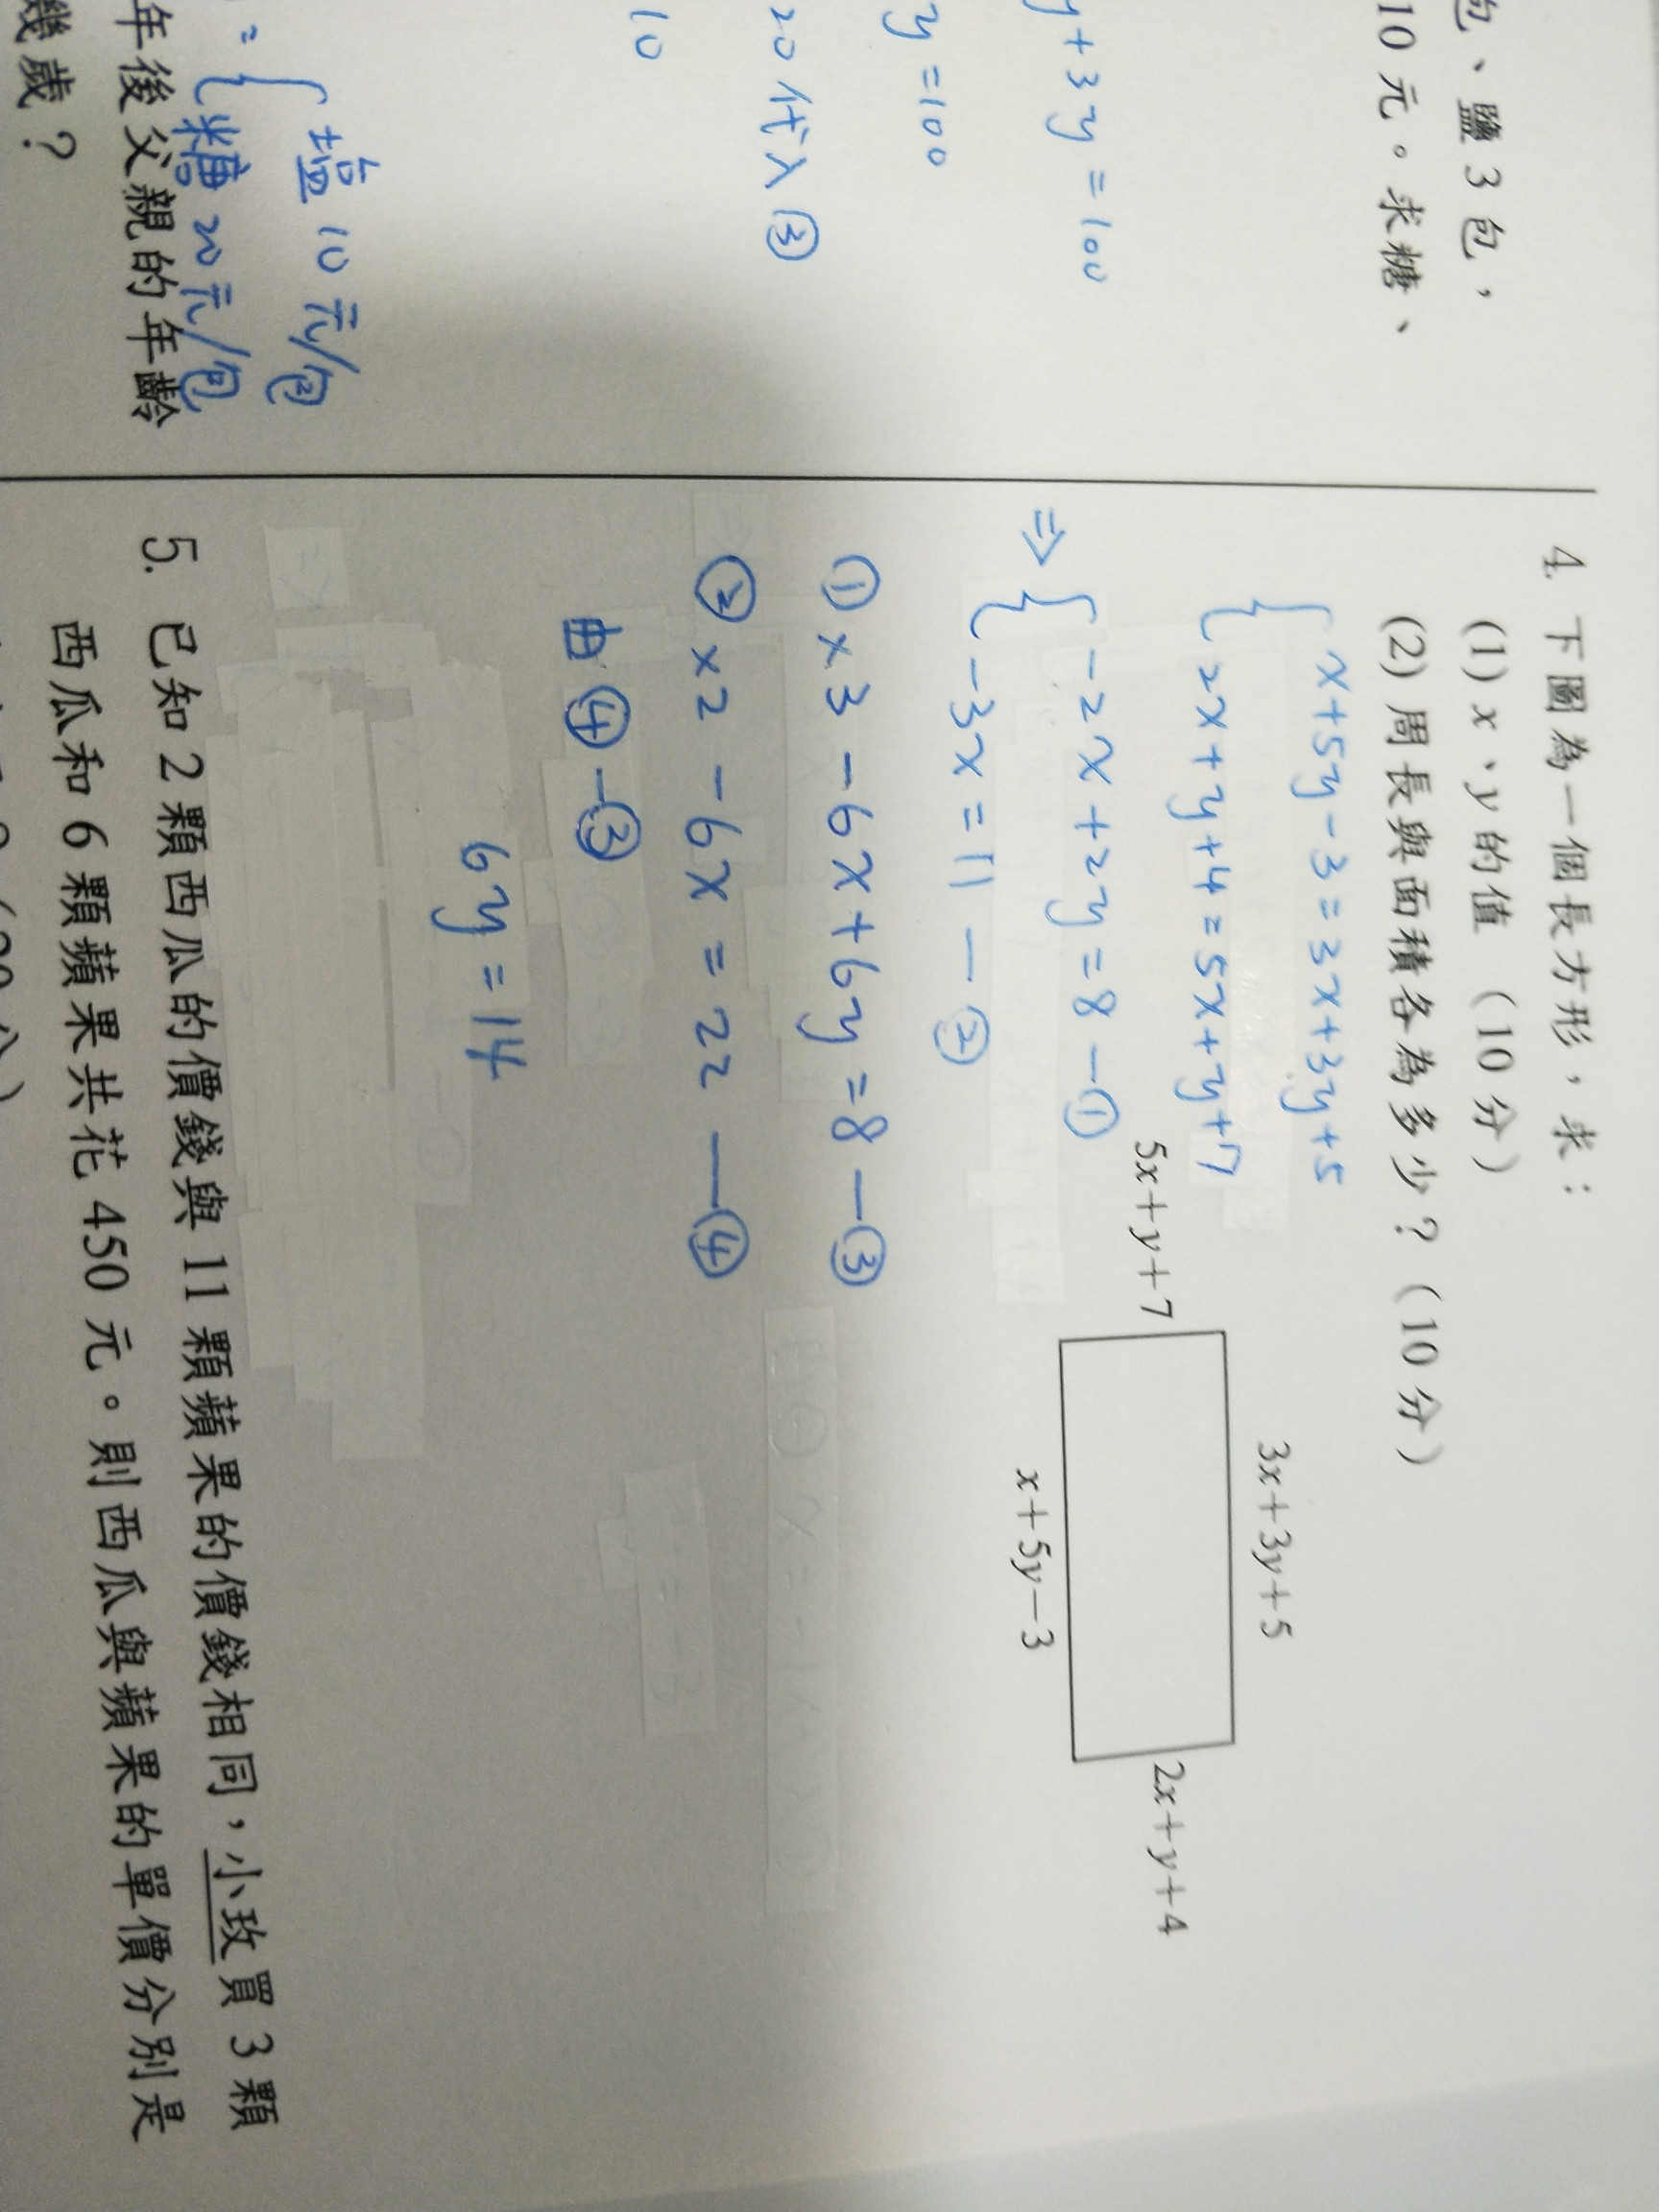 包、鹽 3 包，
10 元。求糖、
y+3y=100
y=100
20代入③
10
= { 塩 10元/包
糖 20元/包
年後父親的年齡
幾歲？
4. 下圖為一個長方形，求：
(1) x、y 的值 （10 分）
(2) 周長與面積各為多少？（10 分）
{ x+5y-3=3x+3y+5
2x+y+4=5x+y+7
⇒ { -2x+2y=8 -①
-3x=11 -②
3x+3y+5
5x+y+7
2x+y+4
x+5y-3
①x3 -6x+6y=8 -③
②x2 -6x=22 -④
由④-③
6y=14
5. 已知 2 顆西瓜的價錢與 11 顆蘋果的價錢相同，小玫買 3 顆
西瓜和 6 顆蘋果共花 450 元。則西瓜與蘋果的單價分別是